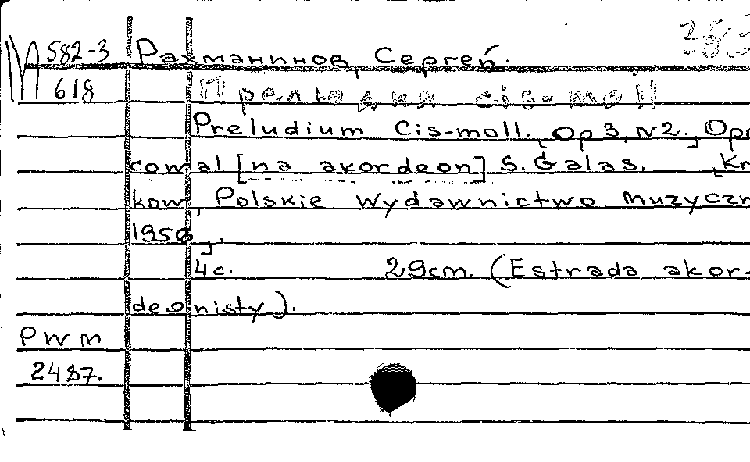 М 582-3 Рахманинов, Сергей.
618 Прелюдия cis-moll
Preludium Cis-moll. [Op 3, N2.] Opr
cowal [na akordeon] S. Galas. [Kr
kow], Polskie Wydawnictwo Muzyczn
1956].
4c. 29cm. (Estrada akor-
deonisty).
PWM
2487.